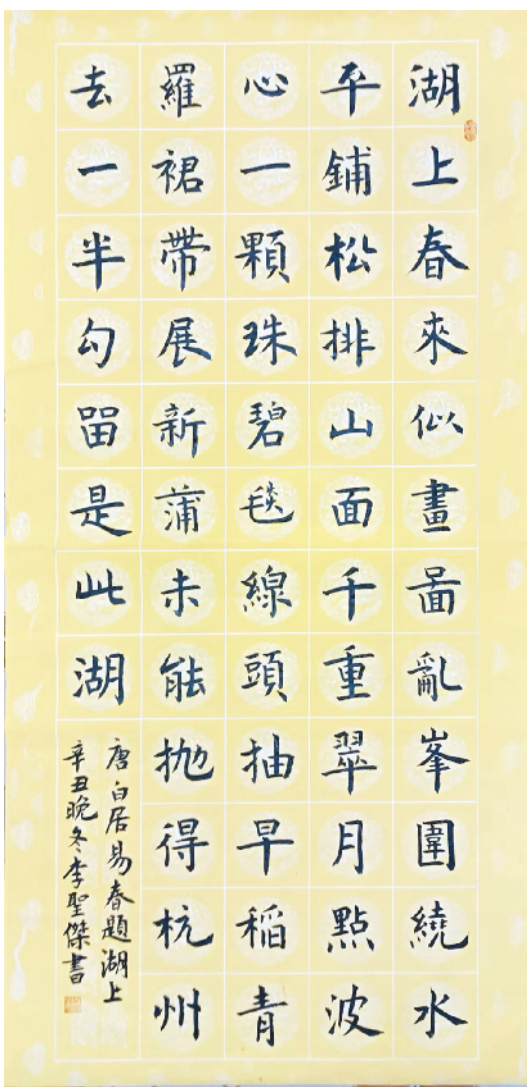 湖上春來似畫啚亂峯圍繞水
平鋪松排山面千重翠月點波
心一顆珠碧毯線頭抽早稻青
羅裙帶展新蒲未能抛得杭州
去一半勾畱是此湖
唐白居易春題湖上
辛丑晚冬李聖傑書